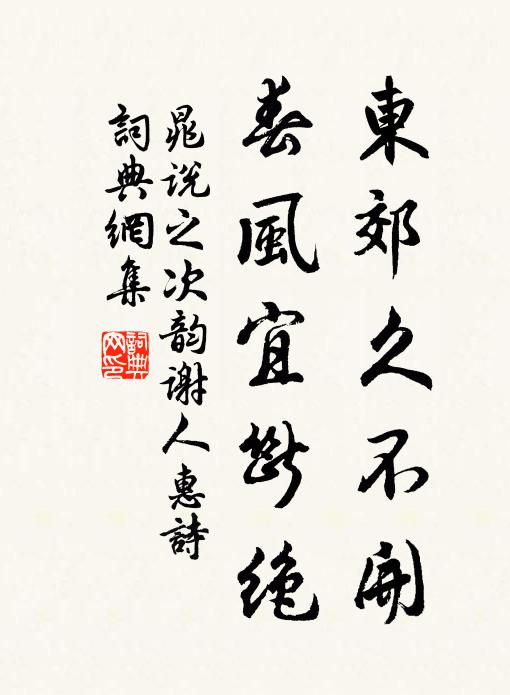 東郊久不開
春風宜斷絕
晁說之次韵謝人惠詩
詞典網集
詞典
网印